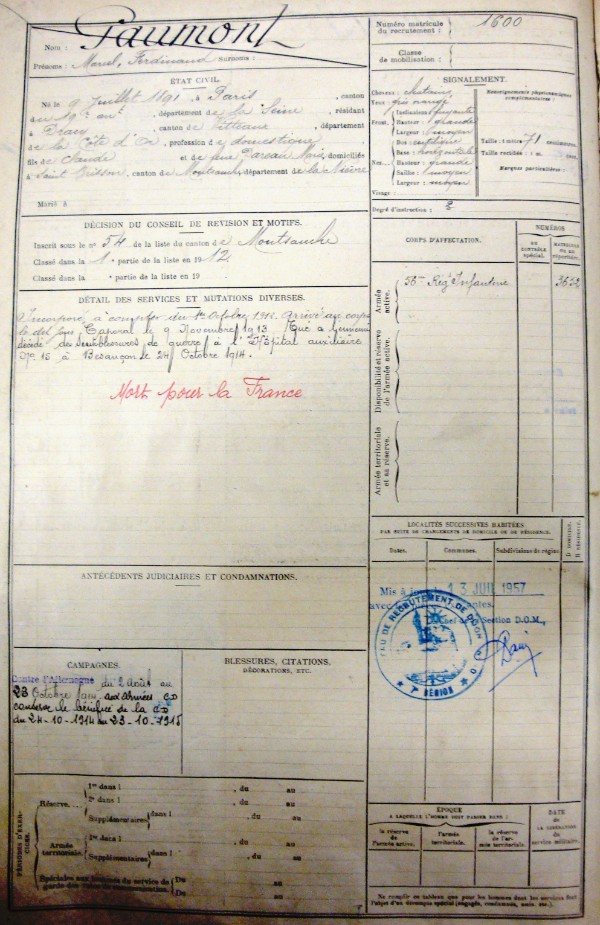 Nom : Gaumont
Prénoms : Marcel, Ferdinand Surnoms :
Numéro matricule du recrutement : 1600
Classe de mobilisation :
ÉTAT CIVIL.
Né le 9 Juillet 1891, à Paris, canton
du 19e arrt, département de la Seine, résidant
à Dracy, canton de Vitteaux, département
de la Côte d'Or, profession de domestique
fils de Claude et de feue Marie, domiciliés
à Saint Brisson, canton de Montsauche, département de la Nièvre
Marié à
SIGNALEMENT.
Cheveux : chatains
Yeux :
Front, Inclinaison : fuyante
Hauteur : grande
Largeur : moyen
Nez, Dos : rectiligne
Base : horizontale
Hauteur : grande
Saillie : moyen
Largeur : moyen
Visage :
Renseignements physiognomiques complémentaires :
Taille : 1 mètre 71 centimètres
Taille rectifiée : 1 m.
Marques particulières :
Degré d'instruction : 2
DÉCISION DU CONSEIL DE RÉVISION ET MOTIFS.
Inscrit sous le n° 54 de la liste du canton de Montsauche
Classé dans la 1e partie de la liste en 1912
Classé dans la e partie de la liste en 19
DÉTAIL DES SERVICES ET MUTATIONS DIVERSES.
Incorporé à compter du Octobre 1912. Arrivé au corps
le dit jour, Caporal le 9 Novembre 1913. Tué à l'ennemi
décédé des suites de blessures de guerre à l'Hôpital auxiliaire
No 15 à Besançon le 24 Octobre 1914.
Mort pour la France
CORPS D'AFFECTATION.
NUMÉROS
AU CONTRÔLE SPÉCIAL.
MATRICULE OU AU RÉPERTOIRE.
Armée active.
56me Régt Infanterie
3652
Disponibilité et réserve de l'armée active.
Armée territoriale et sa réserve.
LOCALITÉS SUCCESSIVES HABITÉES
PAR SUITE DE CHANGEMENTS DE DOMICILE OU DE RÉSIDENCE.
Dates. Communes. Subdivisions de région. D. DOMICILE. R. RÉSIDENCE.
Mis à jour le 13 JUIL 1957
Le Chef de la Section D.O.M.,
BUREAU DE RECRUTEMENT DE DIJON
7e RÉGION
ANTÉCÉDENTS JUDICIAIRES ET CONDAMNATIONS.
CAMPAGNES.
Contre l'Allemagne du 2 août au
23 Octobre 1914 aux armées CD
conserve le bénéfice de la CD
du 24-10-1914 au 23-10-1915
BLESSURES, CITATIONS,
DÉCORATIONS, ETC.
PÉRIODES D'EXERCICES.
Réserve....
1re dans l , du au
2e dans l , du au
Supplémentaires dans l , du au
Armée territoriale.
1re dans l , du au
Supplémentaires dans l , du au
Spéciales aux hommes du service de garde des voies de communication.
Du au
Du au
ÉPOQUE
A LAQUELLE L'HOMME DOIT PASSER DANS :
la réserve de l'armée active.
l'armée territoriale.
la réserve de l'armée territoriale.
DATE
DE LA LIBÉRATION du service militaire.
Ne remplir ce tableau que pour les hommes dont les services font
l'objet d'un décompte spécial (engagés, condamnés, omis, etc.)